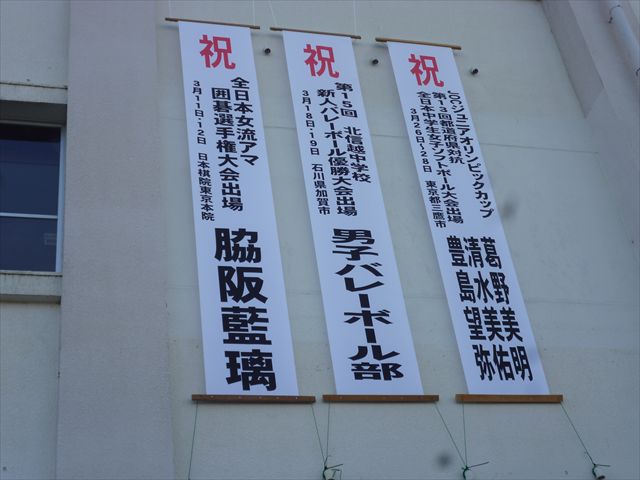 祝
全日本女流アマ
囲碁選手権大会出場
3月11日・12日 日本棋院東京本院
脇阪藍璃
祝
第15回 北信越中学校
新人バレーボール優勝大会出場
3月18日・19日 石川県加賀市
男子バレーボール部
祝
JOCジュニアオリンピックカップ
第13回都道府県対抗
全日本中学生女子ソフトボール大会出場
3月26日~28日 東京都三鷹市
葛野美明
清水美佑
豊島望弥